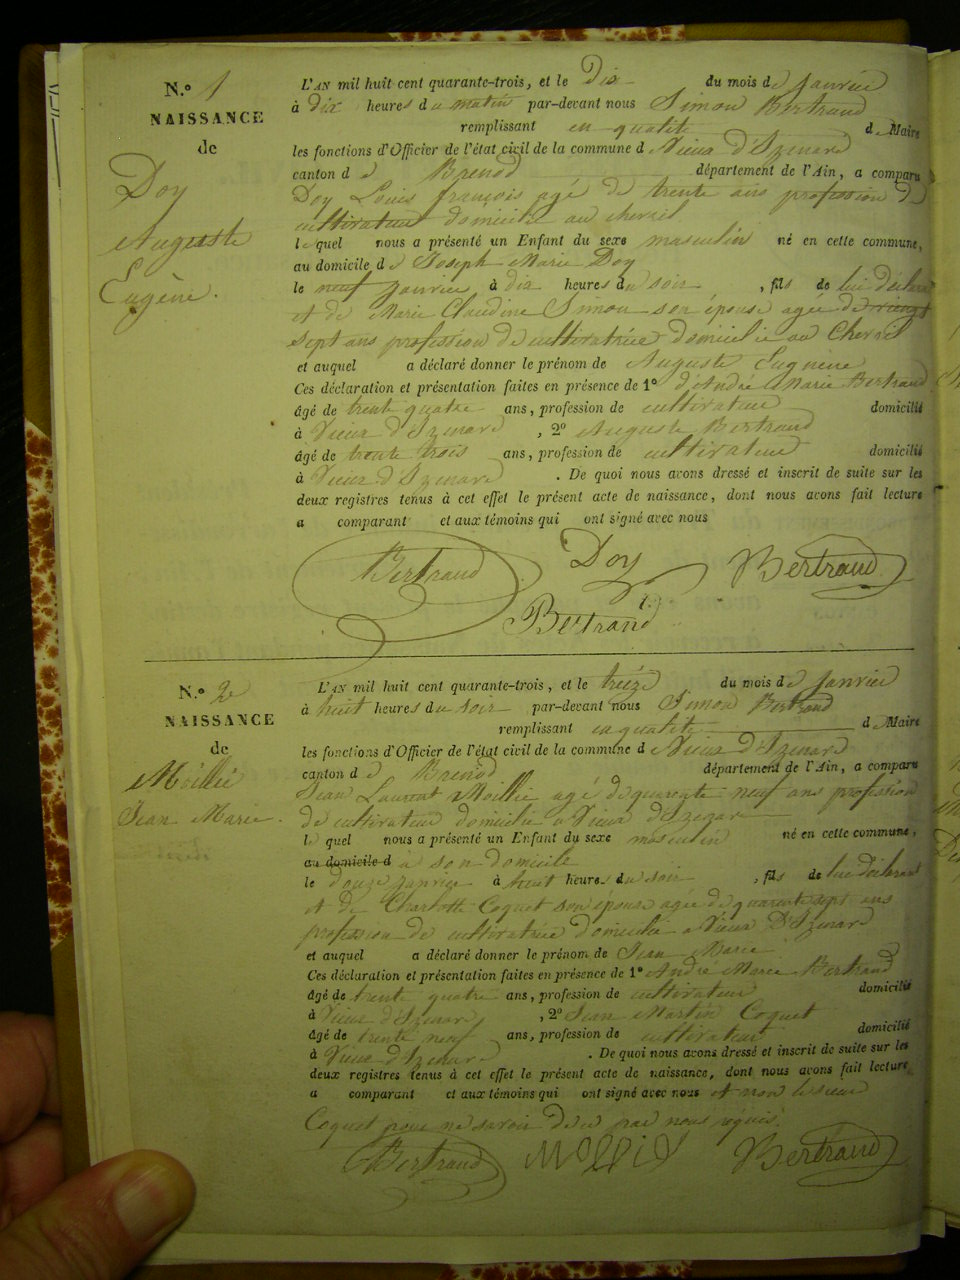 N.o 1
NAISSANCE
de
Doy
Auguste
Eugène.
L'AN mil huit cent quarante-trois, et le Dix du mois de Janvier
à dix heures du matin par-devant nous Simon Bertrand
remplissant en qualité de Maire
les fonctions d'Officier de l'état civil de la commune de Vieux d'Izenave
canton de Brenod département de l'Ain, a comparu
Doy Louis françois agé de trente ans profession de
cultivateur domicilié au chevril
lequel nous a présenté un Enfant du sexe masculin né en cette commune,
au domicile de Joseph Marie Doy
le neuf Janvier à dix heures du soir, fils de lui déclarant
et de Marie Claudine Simon son épouse agée de vingt
sept ans profession de cultivatrice domicilié au Chevril
et auquel a déclaré donner le prénom de Auguste Eugnène
Ces déclaration et présentation faites en présence de 1o d'André Marie Bertrand
âgé de trente quatre ans, profession de cultivateur domicilié
à Vieux d'Izenave, 2o Auguste Bertrand
âgé de trente trois ans, profession de cultivateur domicilié
à Vieux d'Izenave. De quoi nous avons dressé et inscrit de suite sur les
deux registres tenus à cet effet le présent acte de naissance, dont nous avons fait lecture
a comparant et aux témoins qui ont signé avec nous
Bertrand Doy Bertrand
Bertrand
N.o 2
NAISSANCE
de
Moillié
Jean Marie.
L'AN mil huit cent quarante-trois, et le treize du mois de Janvier
à huit heures du soir par-devant nous Simon Bertrand
remplissant en qualité de Maire
les fonctions d'Officier de l'état civil de la commune de Vieux d'Izenave
canton de Brénod département de l'Ain, a comparu
Jean Laurent Moillié agé de quarente neuf ans profession
de cultivateur domicilié a Vieux d'Izenave
le quel nous a présenté un Enfant du sexe masculin né en cette commune,
au domicile d à son domicile
le douze Janvier à huit heures du soir, fils de lui déclarant
et de Charlotte Coquet son épouse agée de quarante sept ans
profession de cultivatrice domicilié a Vieux D'Izenave
et auquel a déclaré donner le prénom de Jean Marie
Ces déclaration et présentation faites en présence de 1o André Marie Bertrand
âgé de trente quatre ans, profession de cultivateur domicilié
à Vieux d'Izenave, 2o Jean Martin Coquet
âgé de trente neuf ans, profession de cultivateur domicilié
à Vieux d'Izenave. De quoi nous avons dressé et inscrit de suite sur les
deux registres tenus à cet effet le présent acte de naissance, dont nous avons fait lecture
a comparant et aux témoins qui ont signé avec nous et non le sieur
Coquet pour ne savoir de ce par nous réquis.
Bertrand Mollié Bertrand